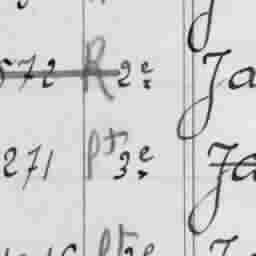 572 R 2e Ja
271 pt 3e Ja